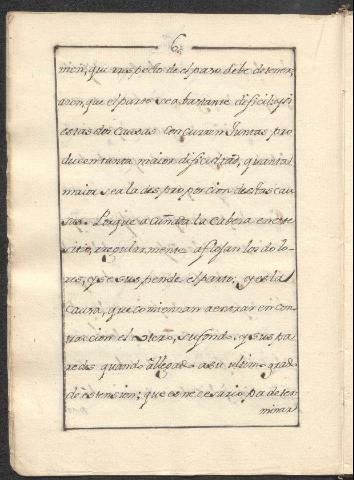 6.
men, que respecto de el paso debe detener;
aron, que el parto sea bastante dificil; y si
estas dos causas concurren Juntas, pro
ducen tanta maior dificultad, quanta
maior sea la desproporcion de estas cau
sas. Luque acuñada la Cabeza en este
sitio, regularmente afloxan los dolo-
res, y se suspende el parto; y es la
Causa, que comienzan a entrar en con
traccion el utero, su fondo, y sus pa
redes quando á llegado a su ultimo grado
de estension; que es necesario pa deter
minar